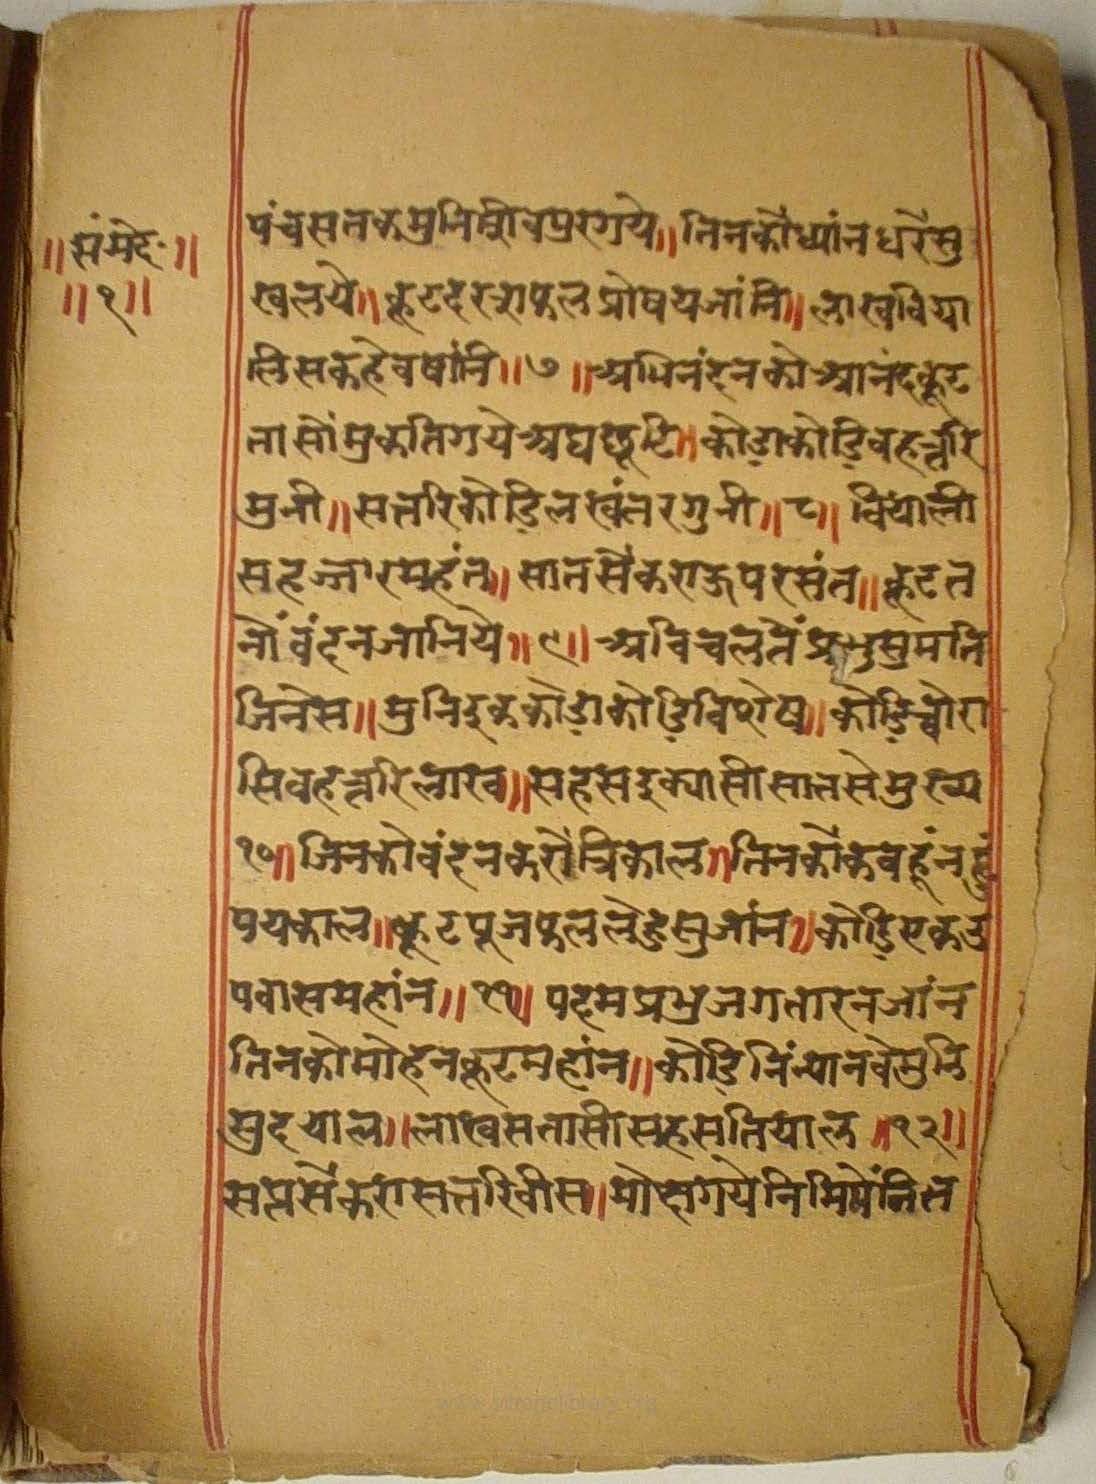 ॥संमेद॥
॥१॥
पंचसतकमुनिसीवपुरगये॥तिनकौध्यांनधरैसु
खलये॥कूटदरसफलप्रोषधजांनि॥लाखबिया
लिसकहेवषांनि॥७॥अभिनंदनकोआनंदकूट
तासौंमुकतिगयेअघछूटि॥कोडाकोडिबहत्तरि
मुनी॥सत्तरिकोडिलखंतरगुनी॥८॥बियाली
सहज्जारमहंत॥सातसैंकराऊपरसंत॥कूटत
नौंवंदनजानिये॥९॥अविचलतैंप्रभुसुमति
जिनेस॥मुनिइककोडाकोडिविशेष॥कोडिचौरा
सिबहत्तरिलाख॥सहसइक्यासीसातसेमुख्य
१०॥जिनकोवंदनकरौत्रिकाल॥तिनकौकबहूंनहुं
पयकाल॥कूटपूजफललेहुसुजांन॥कोडिएकउ
पवासमहांन॥११॥पदमप्रभुजगतारनजांन
तिनकोमोहनकूटमहांन॥कोडिनिंन्यानवेमुनि
सुदयाल॥लाखसतासीसहसतियाल॥१२॥
सप्तसैंकरासत्तरिवीस॥मोक्षगयेनमिपेंनित
www.jainelibrary.org